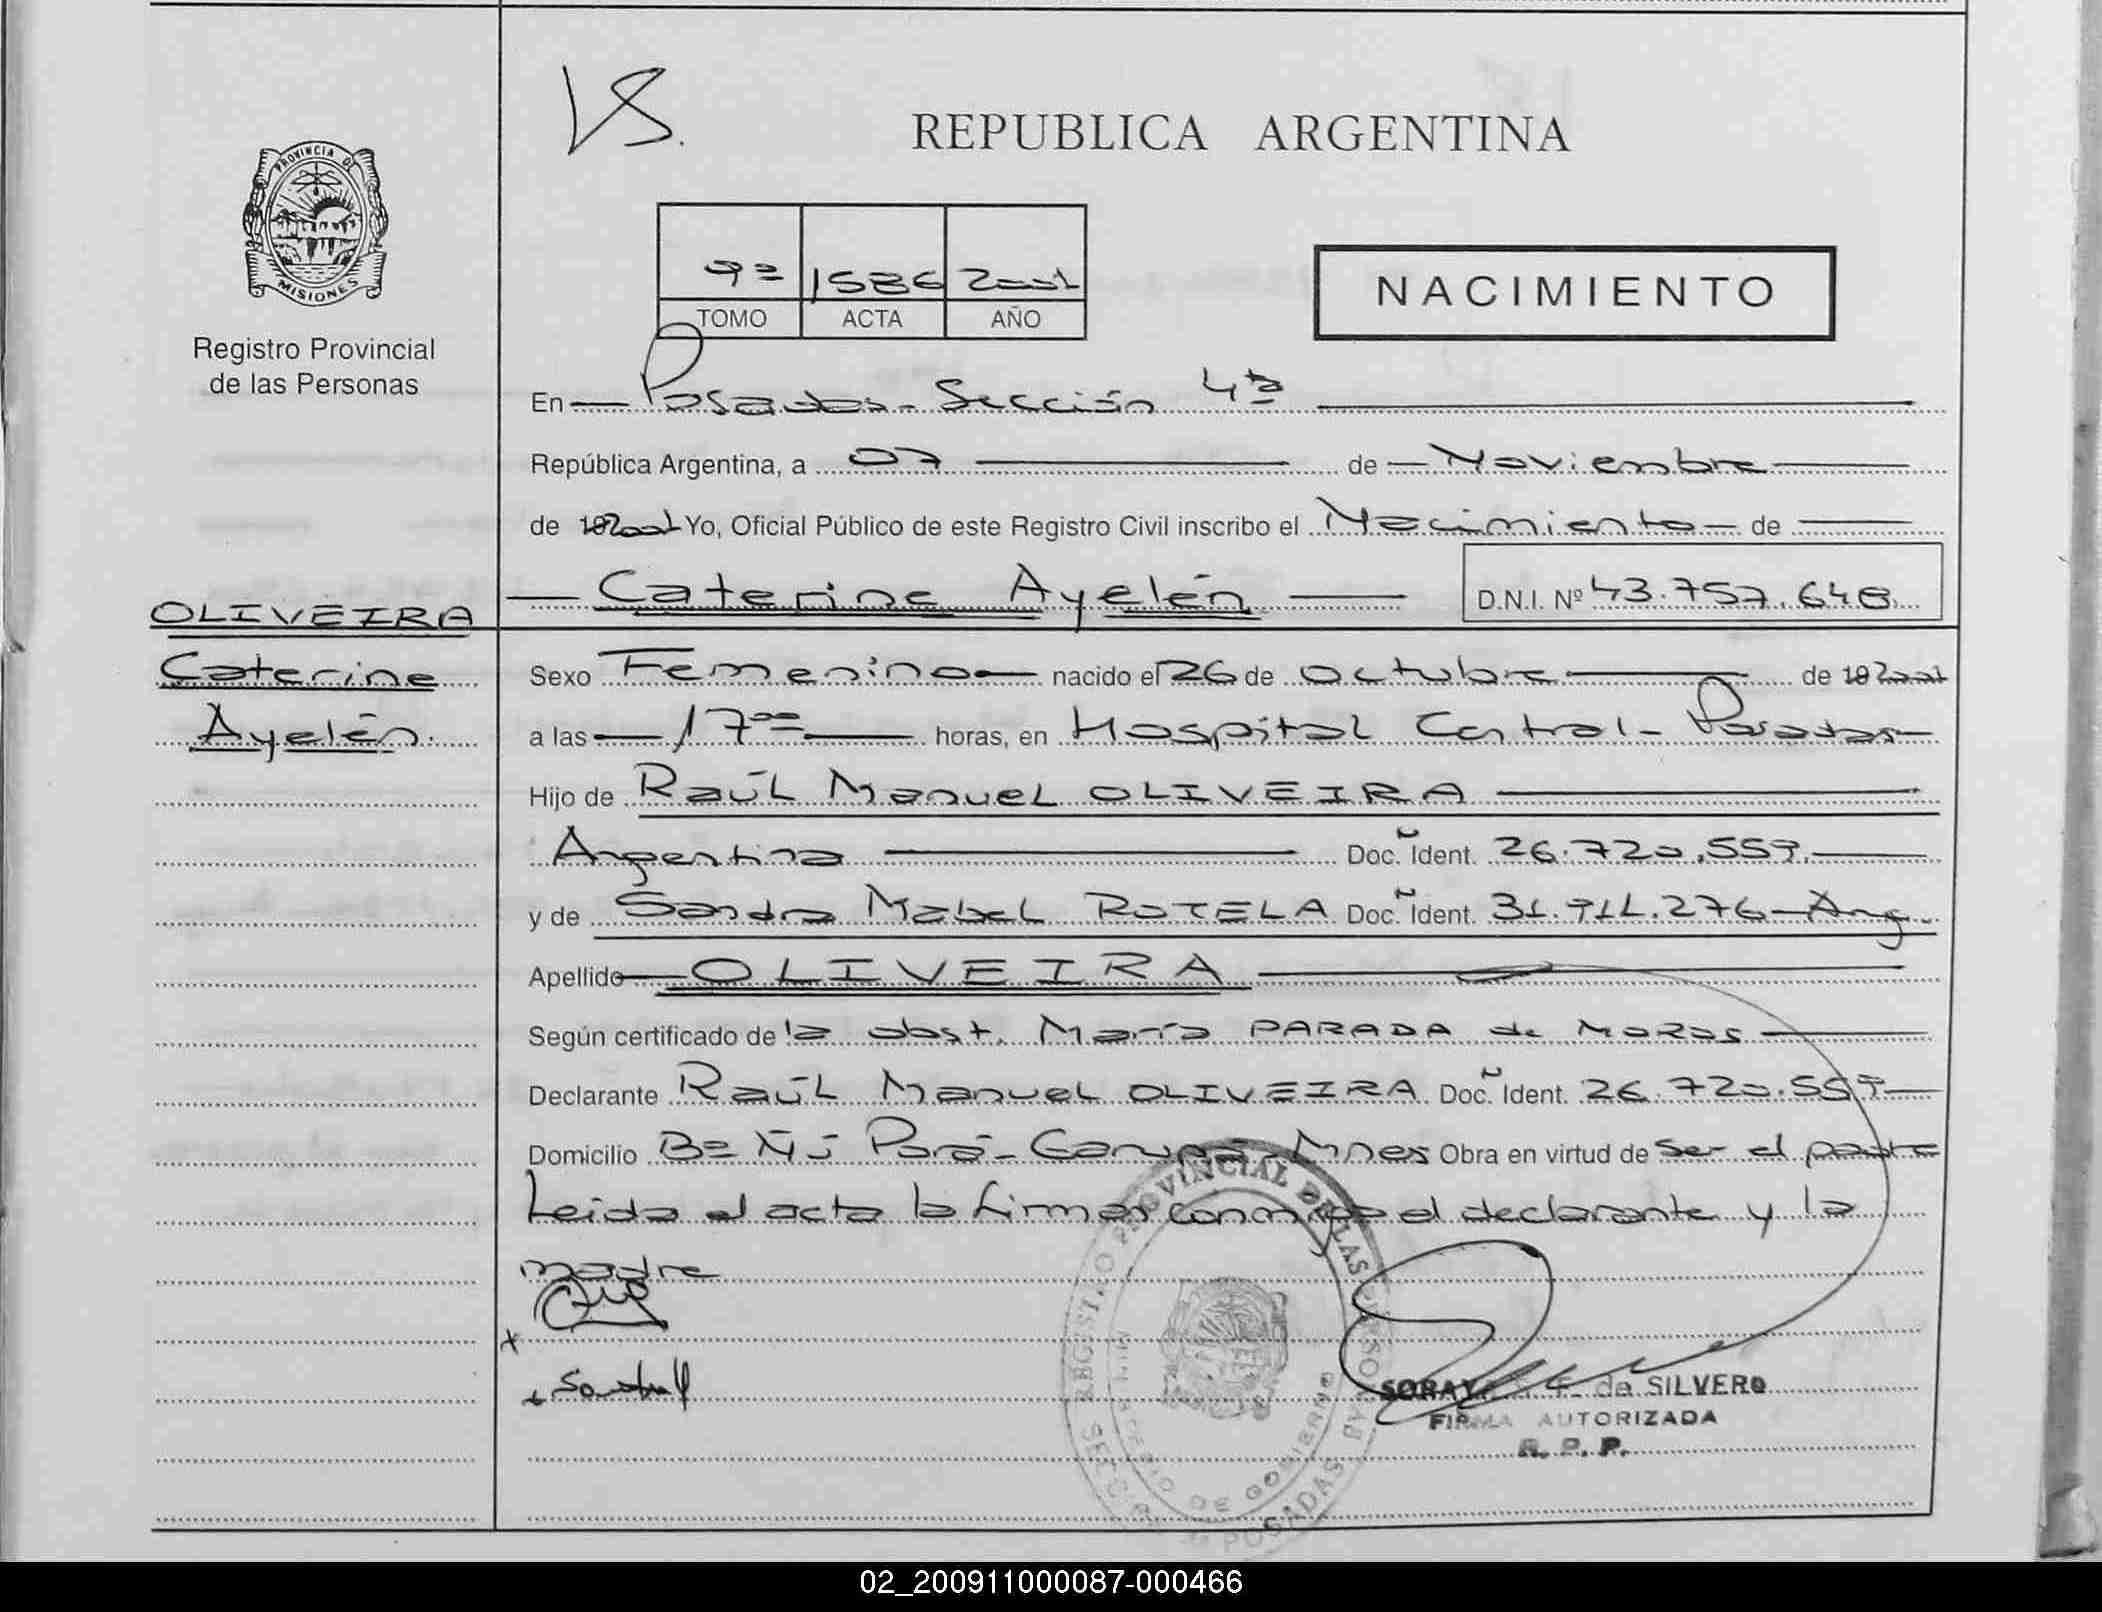 REPUBLICA ARGENTINA
PROVINCIA D
MISIONES
Registro Provincial
de las Personas
9º 1586 2001
TOMO ACTA AÑO
NACIMIENTO
En Posadas - Sección 4ª
República Argentina, a 07 de Noviembre
de 192001 Yo, Oficial Público de este Registro Civil inscribo el Nacimiento de
Caterine Ayelén D.N.I. Nº 43.757.648
OLIVEIRA
Caterine
Ayelén
Sexo Femenino nacido el 26 de Octubre de 192001
a las 17ºº horas, en Hospital Central - Posadas
Hijo de Raúl Manuel OLIVEIRA
Argentina Doc. Ident. 26.720.557
y de Sandra Mabel ROTELA Doc. Ident. 31.911.276 - Arg.
Apellido OLIVEIRA
Según certificado de la obst. María PARADA de MORAS
Declarante Raúl Manuel OLIVEIRA Doc. Ident. 26.720.557
Domicilio Bº Ñú Porá - Garupá - Mnes Obra en virtud de ser el padre
Leida el acta la firman conmigo el declarante y la
madre
REGISTRO PROVINCIAL DE LAS PERSONAS
DE GOBIERNO
POSADAS
de SILVERO
FIRMA AUTORIZADA
R. P. P.
02_200911000087-000466